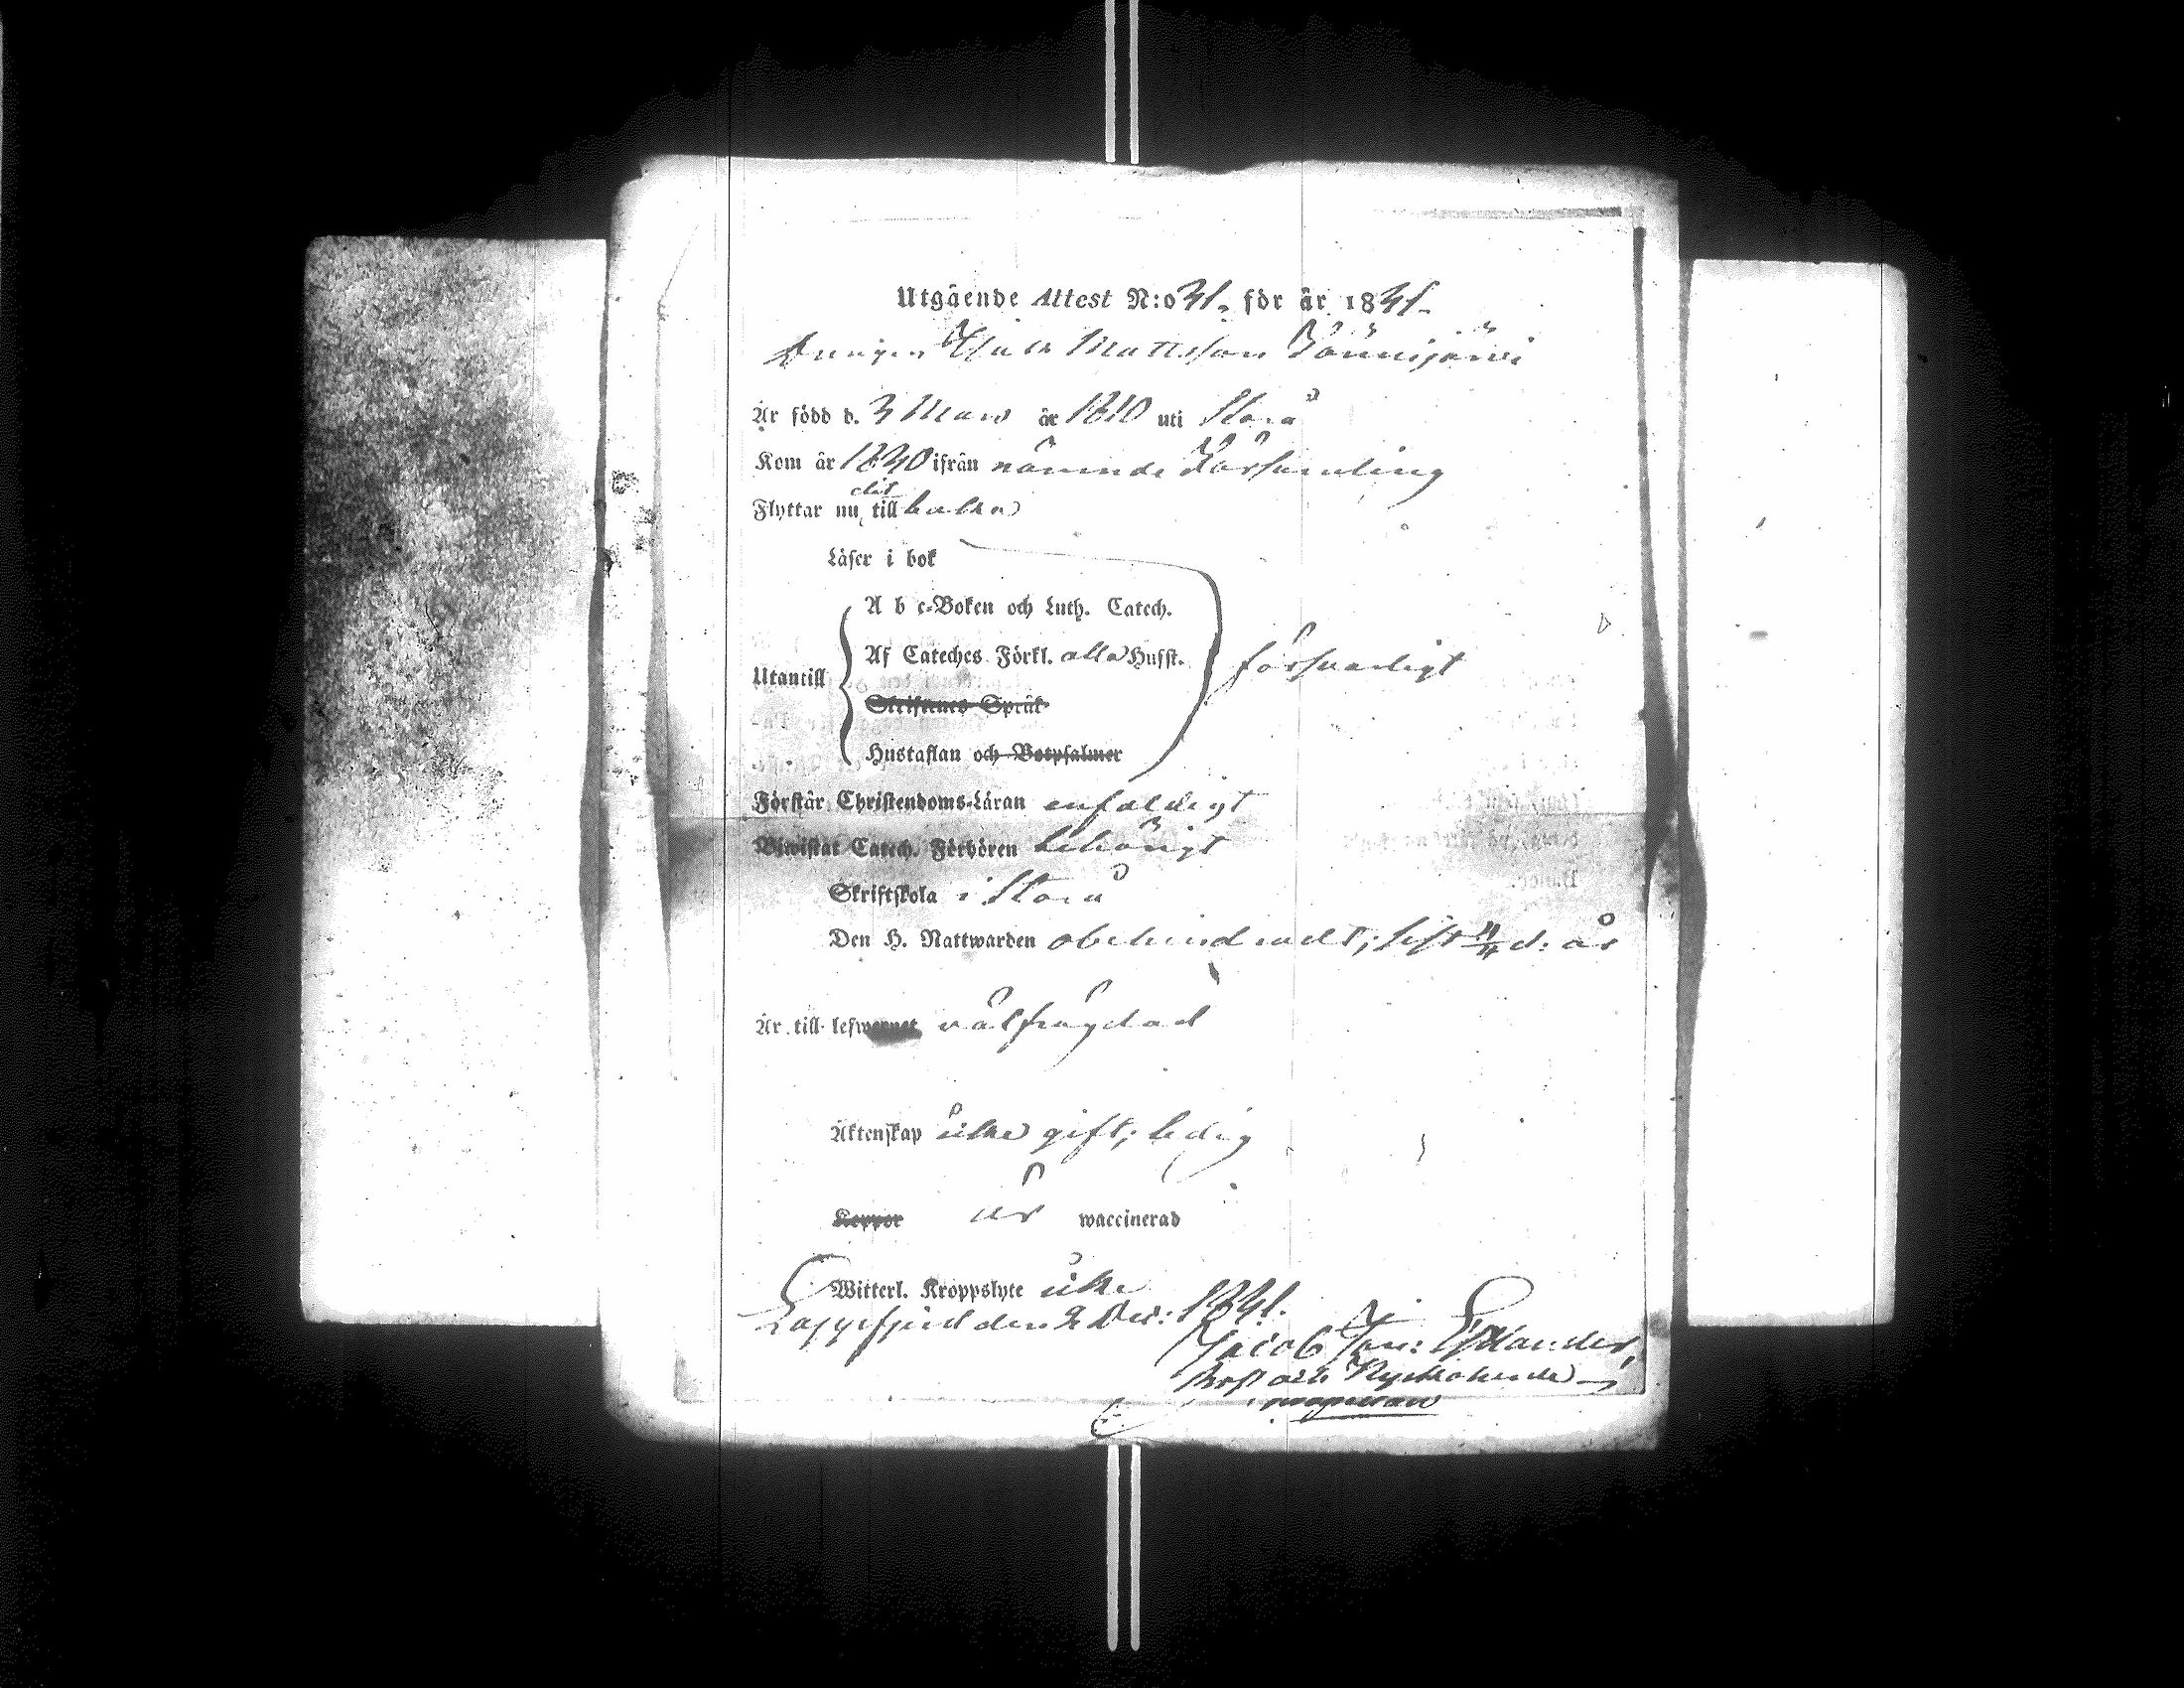 Utgående Attest N:o 31. för år 1831.
Drängen Isak Mattsson Sönnijärvi
Är född d. 3 Mars år 1810 uti Storå
Kom år 1830 ifrån nämnde Församling
Flyttar nu dit till baka
Läser i bok
A b c-Boken och Luth. Catech.
Af Cateches Förkl. alla Husst.
Utantill försvarligt
Skriftenes Språk
Hustaflan och Botpsalmer
Förstår Christendoms-Läran enfaldigt
Biwistat Catech. Förhören behörigt
Skriftskola i Storå
Den H. Nattwarden obehindradt; sist d: år
Är till lefwernet välfrägdad
Äktenskap icke gift; ledig
Koppor är waccinerad
Witterl. Kroppslyte icke
Lappfjerd den 2 Dec: 1831.
Jacob Joh: Estlander,
Prost och Kyrkoherde